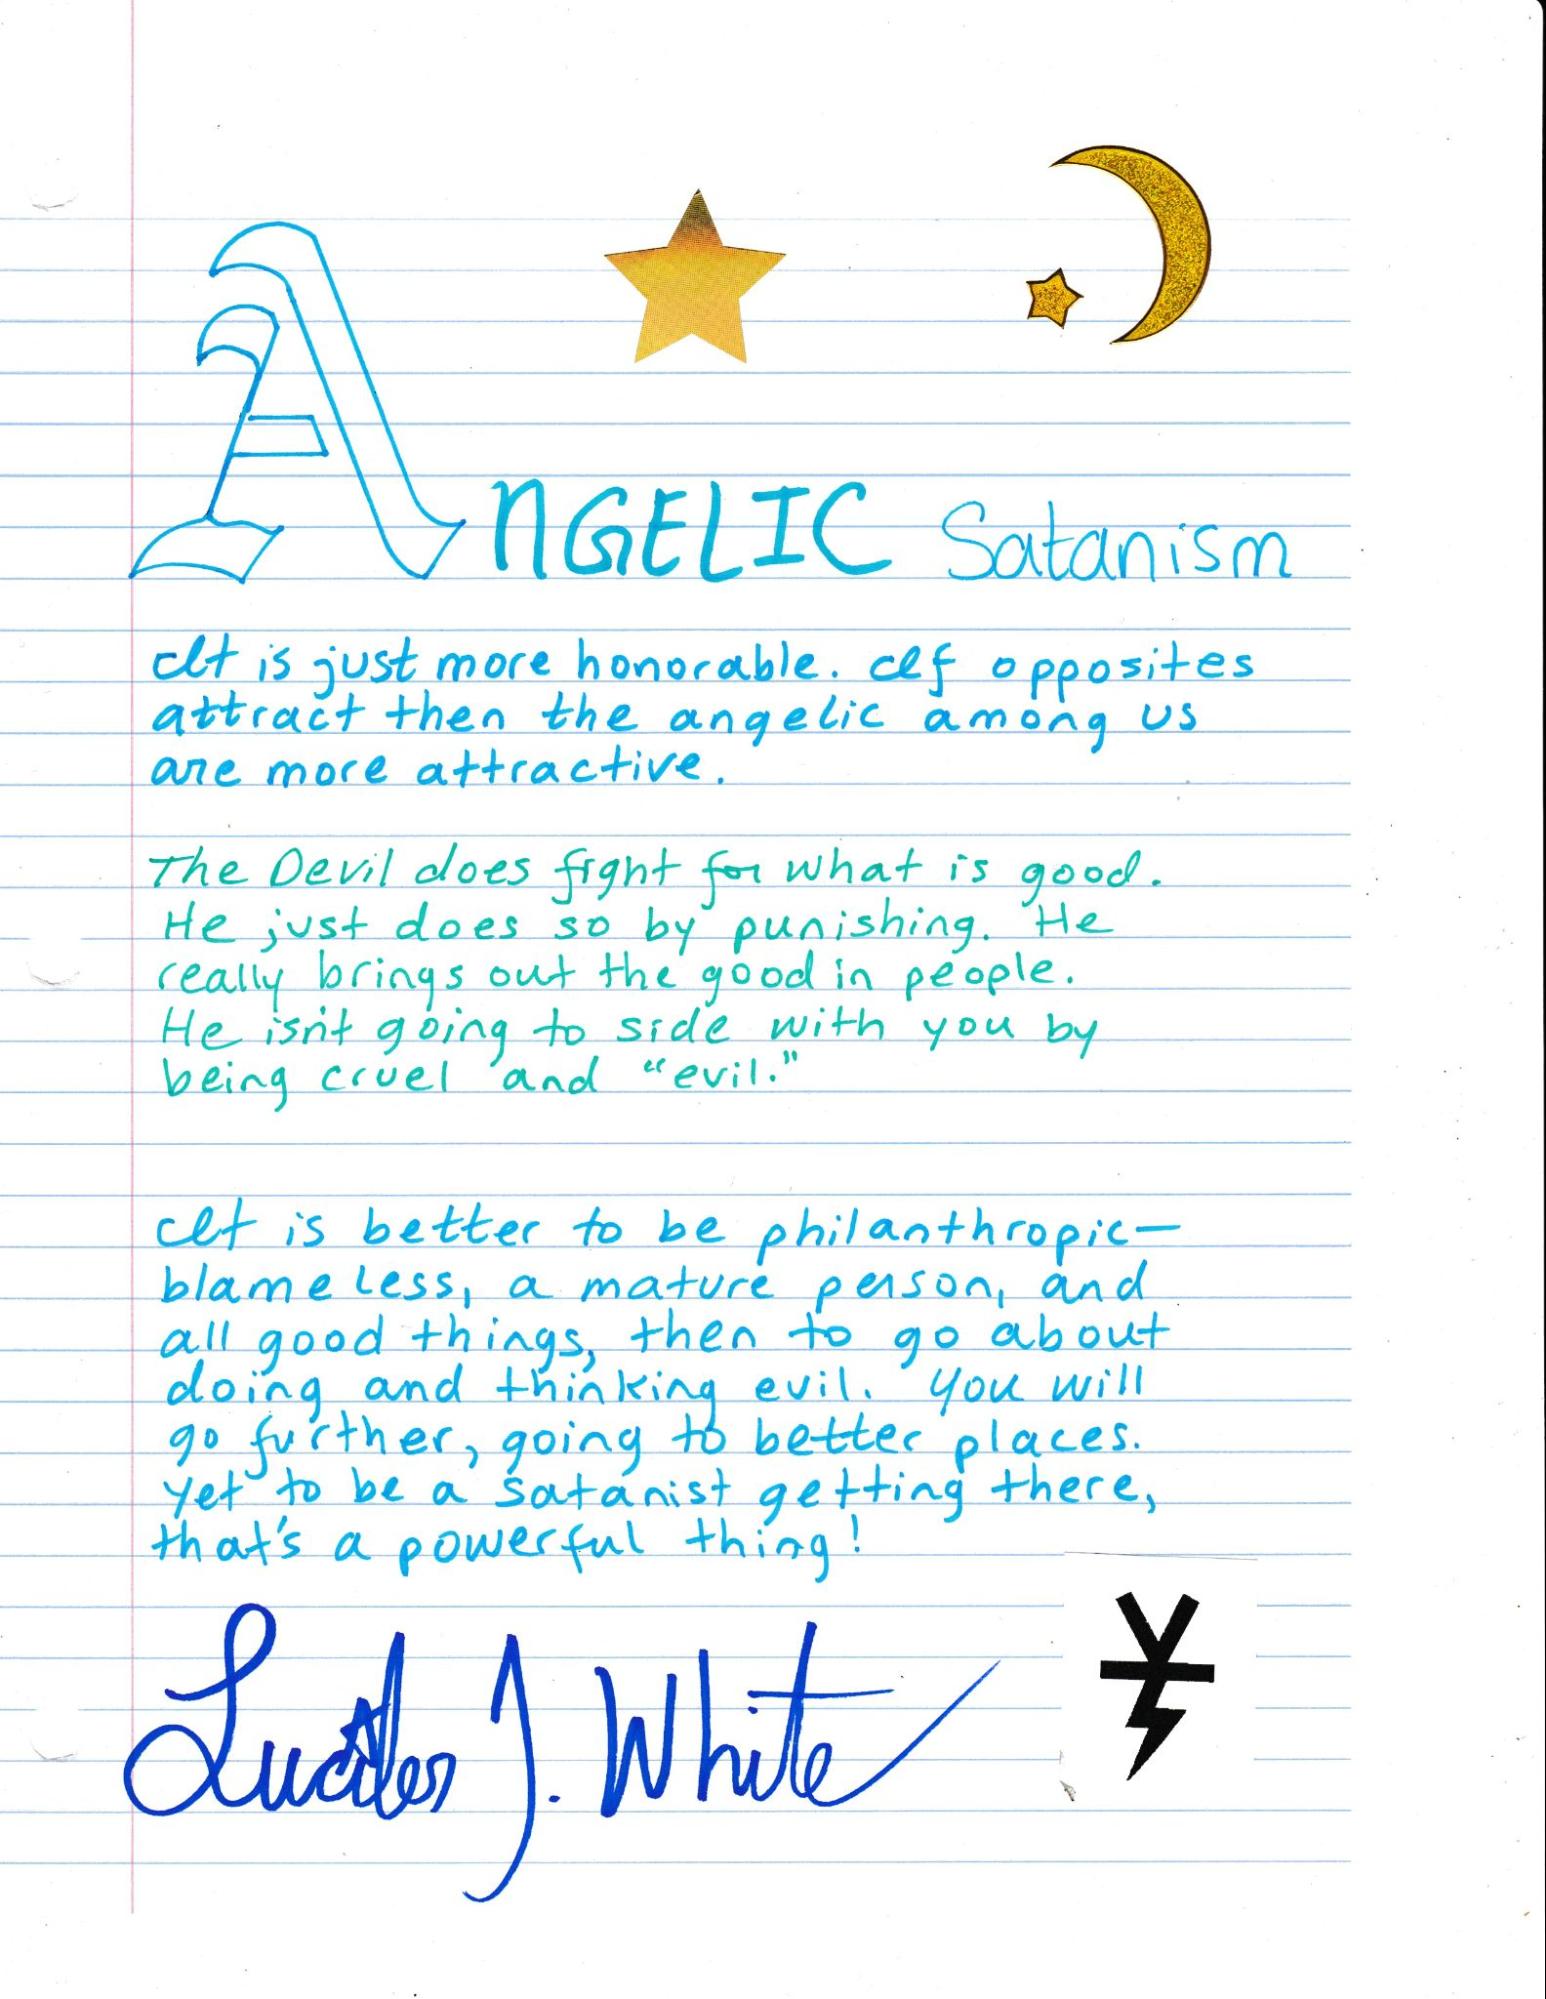 ANGELIC Satanism
It is just more honorable. If opposites
attract then the angelic among us
are more attractive.
The Devil does fight for what is good.
He just does so by punishing. He
really brings out the good in people.
He isn't going to side with you by
being cruel and "evil."
It is better to be philanthropic—
blameless, a mature person, and
all good things, then to go about
doing and thinking evil. You will
go further, going to better places.
Yet to be a satanist getting there,
that's a powerful thing!
Lucifer J. White